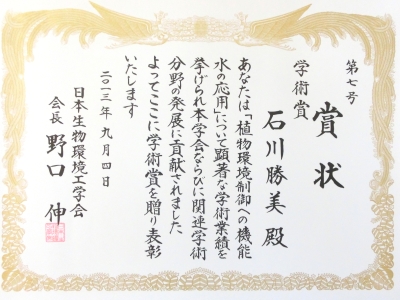 第七号
賞状
学術賞
石川勝美殿
あなたは「植物環境制御への機能
水の応用」について顕著な学術業績を
挙げられ本学会ならびに関連学術
分野の発展に貢献されました
よってここに学術賞を贈り表彰
いたします
二〇一三年九月四日
日本生物環境工学会
会長 野口伸